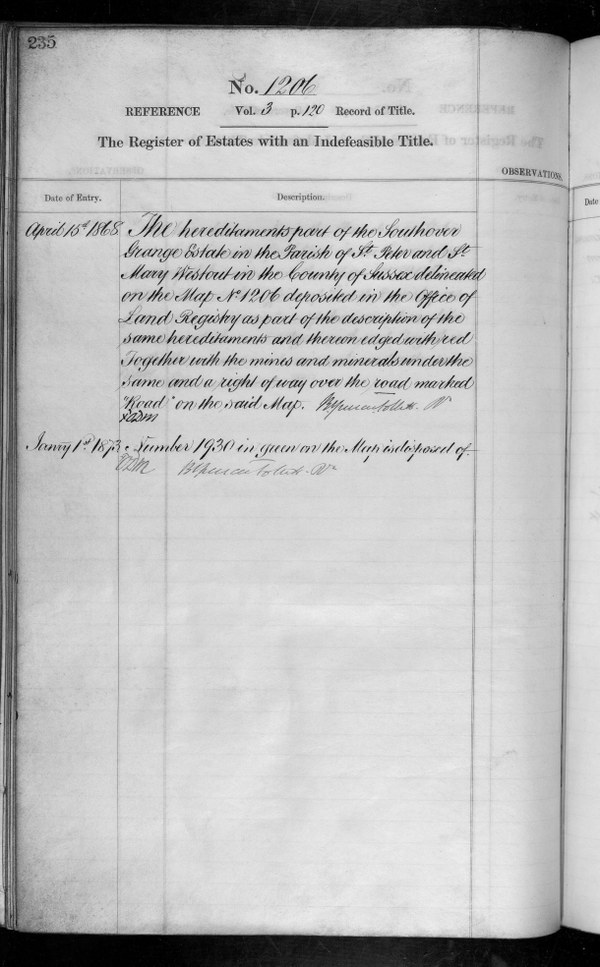 235
No. 1206
REFERENCE Vol. 3 p. 120 Record of Title.
The Register of Estates with an Indefeasible Title.
OBSERVATIONS.
Date of Entry. Description.
Date
April 15th 1868 The hereditaments part of the Southover
Grange Estate in the Parish of St. Peter and St.
Mary Westout in the County of Sussex delineated
on the Map No 1206 deposited in the Office of
Land Registry as part of the description of the
same hereditaments and thereon edged with red
Together with the mines and minerals under the
same and a right of way over the road marked
"Road" on the said Map.
Janry 1st 1873 Number 1930 in green on the Map is disposed of